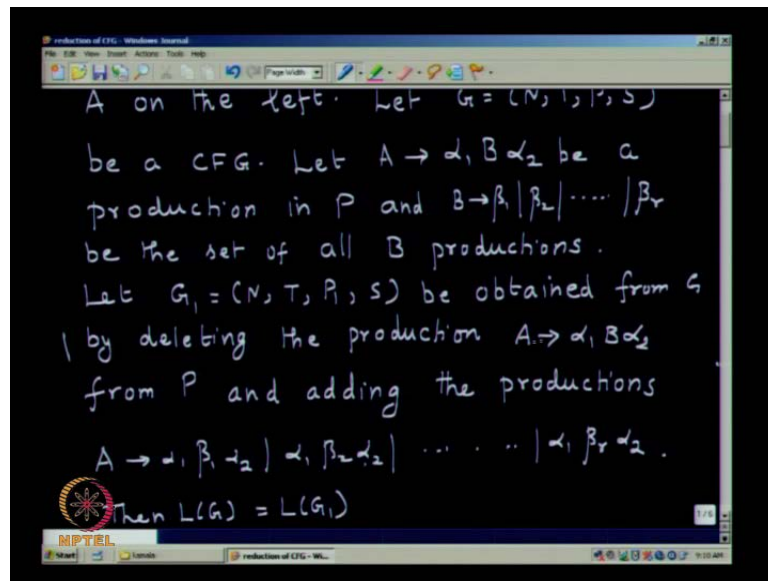 reduction of CFG - Windows Journal
File Edit View Insert Actions Tools Help
Page Width
A on the left. Let G = (N, T, P, S)
be a CFG. Let A → α₁ B α₂ be a
production in P and B → β₁ | β₂ | ..... | βᵣ
be the set of all B productions.
Let G₁ = (N, T, P₁, S) be obtained from G
by deleting the production A → α₁ B α₂
from P and adding the productions
A → α₁ β₁ α₂ | α₁ β₂ α₂ | ... . .. | α₁ βᵣ α₂ .
Then L(G) = L(G₁)
1/6
NPTEL
Start
kamala
reduction of CFG - Wi...
9:10 AM